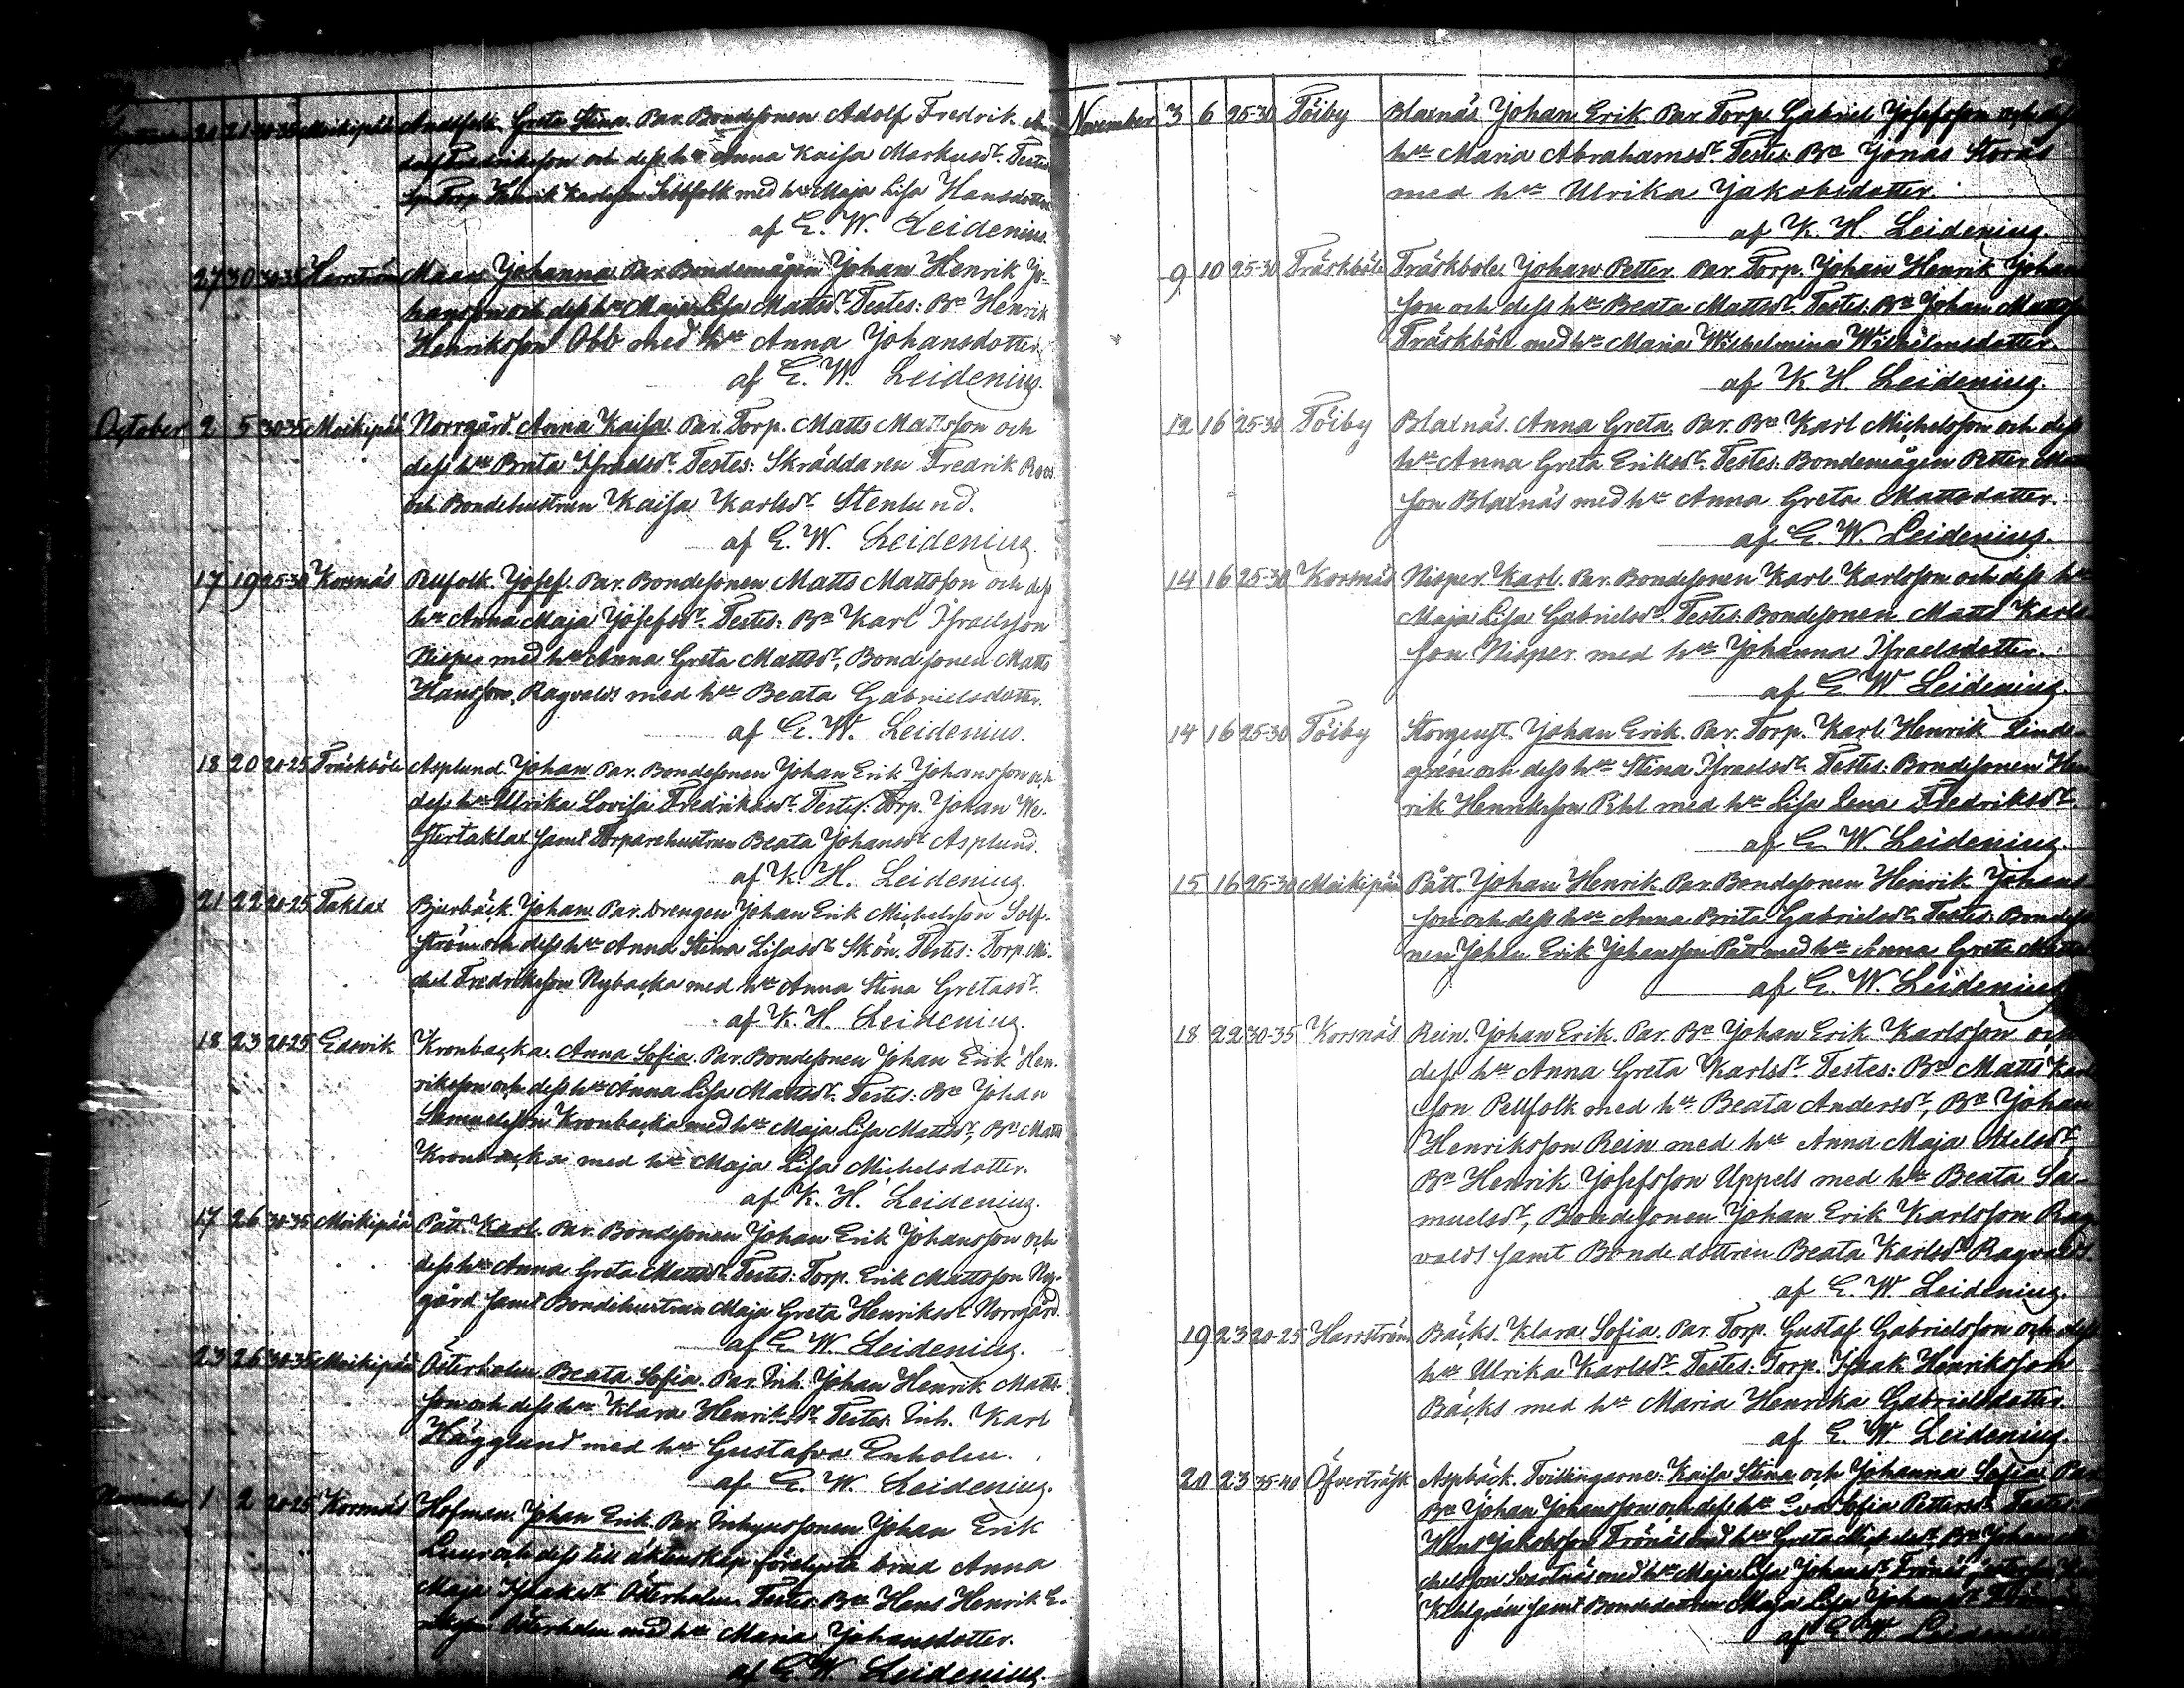 21 21 30-35 Moikipää Andsfolk. Greta Stina. Par. Bondesonen Adolf Fredrik
Fredriksson och dess hu Anna Kaisa Markusdr. Testes
Torp. Henrik Karlsson Sebbfolk med hu Maja Lisa Hansdotter
af E. W. Leidenius.
27 30 30-35 Harrström Maars Johanna. Par. Bondemågen Johan Henrik Jo-
hansson och dess hu Maja Lisa Mattsdr. Testes: Bn Henrik
Henriksson Obb med hu Anna Johansdotter
af E. W. Leidenius.
October 2 5 30-35 Moikipää Norrgård. Anna Kaisa. Par. Torp. Matts Mattsson och
dess hu Brita Israelsdr. Testes: Skräddaren Fredrik Roos
och Bondehustrun Kaisa Karlsdr Stenlund.
af E. W. Leidenius.
17 19 25-30 Korsnäs Pellfolk. Josef. Par. Bondesonen Matts Mattsson och dess
hu Anna Maja Josefsdr. Testes: Bn Karl Israelsson
Nisper med hu Anna Greta Mattsdr, Bondsonen Matts
Hansson Ragvalds med hu Beata Gabrielsdotter.
af E. W. Leidenius.
18 20 20-25 Träskböle Asplund. Johan. Par. Bondesonen Johan Erik Johansson och
dess hu Ulrika Lovisa Fredriksdr. Testes: Torp. Johan We-
stertaklax samt Torparehustrun Beata Johansdr Asplund.
af K. H. Leidenius.
21 22 20-25 Taklax Bjurbäck. Johan. Par. Drengen Johan Erik Michelsson Solf-
ström och dess hu Anna Stina Lisasdr Skön. Testes: Torp. Mi-
chel Fredriksson Nybacka med hu Anna Stina Gretasdr.
af K. H. Leidenius.
18 23 20-25 Edsvik Kronbacka. Anna Sofia. Par. Bondesonen Johan Erik Hen-
riksson och dess hu Anna Lisa Mattsdr. Testes: Bn Johan
Samuelsson Kronbacka med hu Maja Lisa Mattsdr, Bn Matts
Kronbacka med hu Maja Lisa Michelsdotter.
af K. H. Leidenius.
17 26 30-35 Moikipää Pått. Karl. Par. Bondesonen Johan Erik Johansson och
dess hu Anna Greta Mattsdr. Testes: Torp. Erik Mattsson Ny-
gård samt Bondehustrun Maja Greta Henriksdr Norrgård.
af E. W. Leidenius.
23 26 30-35 Moikipää Österholm. Beata Sofia. Par. Inh. Johan Henrik Matts-
son och dess hu Klara Henriksdr. Testes: Inh. Karl
Hägglund med hu Gustafva Enholm.
af E. W. Leidenius.
November 1 2 20-25 Korsnäs Hofman. Johan Erik. Par. Inhysessonen Johan Erik
och dess till äktenskap förelysta brud Anna
Maja Isaksdr Österholm Testes: Bn Hans Henrik E-
riksson Österholm med hu Maria Johansdotter.
af E. W. Leidenius.
November 3 6 25-30 Töiby Blaxnäs Johan Erik. Par. Torp. Gabriel Josefsson och dess
hu Maria Abrahamsdr. Testes: Bn Jonas Storås
med hu Ulrika Jakobsdotter.
af K. H. Leidenius.
9 10 25-30 Träskböle Träskböle. Johan Petter. Par. Torp. Johan Henrik Johans-
son och dess hu Beata Mattsdr. Testes: Bn Johan Mattsson
Träskböle med hu Maria Wilhelmina Wilhelmsdotter.
af K. H. Leidenius.
12 16 25-30 Töiby Blaxnäs. Anna Greta. Par. Bn Karl Michelsson och dess
hu Anna Greta Eriksdr. Testes: Bondemågen Petter
son Blaxnäs med hu Anna Greta Mattsdotter.
af E. W. Leidenius.
14 16 25-30 Korsnäs Nisper. Karl. Par. Bondesonen Karl Karlsson och dess hu
Maja Lisa Gabrielsdr. Testes: Bondesonen Matts Karls-
son Nisper med hu Johanna Israelsdotter.
af E W Leidenius.
14 16 25-30 Töiby Johan Erik. Par. Torp. Karl Henrik Linde-
gren och dess hu Stina Israelsdr. Testes: Bondesonen Hen-
rik Henriksson med hu Lisa Lena Fredriksdr.
af E W. Leidenius.
15 16 25-30 Moikipää Pått. Johan Henrik. Par. Bondesonen Henrik Johans-
son och dess hu Anna Brita Gabrielsdr. Testes: Bondeso-
nen Johan Erik Johansson Pått med hu Anna Greta
af E. W. Leidenius
18 22 30-35 Korsnäs Rein. Johan Erik. Par. Bn Johan Erik Karlsson och
dess hu Anna Greta Karlsdr. Testes: Bn Matts Karls-
son Pellfolk med hu Beata Andersdr, Bn Johan
Henriksson Rein med hu Anna Maja Axelsdr,
Bn Henrik Josefsson Uppels med hu Beata Sa-
muelsdr, Bondesonen Johan Erik Karlsson Rag-
valds samt Bondedottren Beata Karlsdr Ragvalds.
af E. W Leidenius.
19 23 20-25 Harrström Bäcks. Klara Sofia. Par. Torp. Gustaf Gabrielsson och dess
hu Ulrika Karlsdr. Testes: Torp. Isaak Henriksson
Bäcks med hu Maria Henrika Gabrielsdotter.
af E. W. Leidenius
20 23 35-40 Öfverträsk Aspbäck. Tvillingarne: Kaisa Stina och Johanna Sofia. Par.
Bn Johan Johansson och dess hu Eva Sofia Pettersdr. Testes:
Hans Jakobsson Trönäs med hu Greta Bn Johan Mi-
chelsson Svartnäs med hu Maja Lisa Johansdr Trönäs,
samt Bondedottren Maja Lisa Johansdr
af E W Leidenius